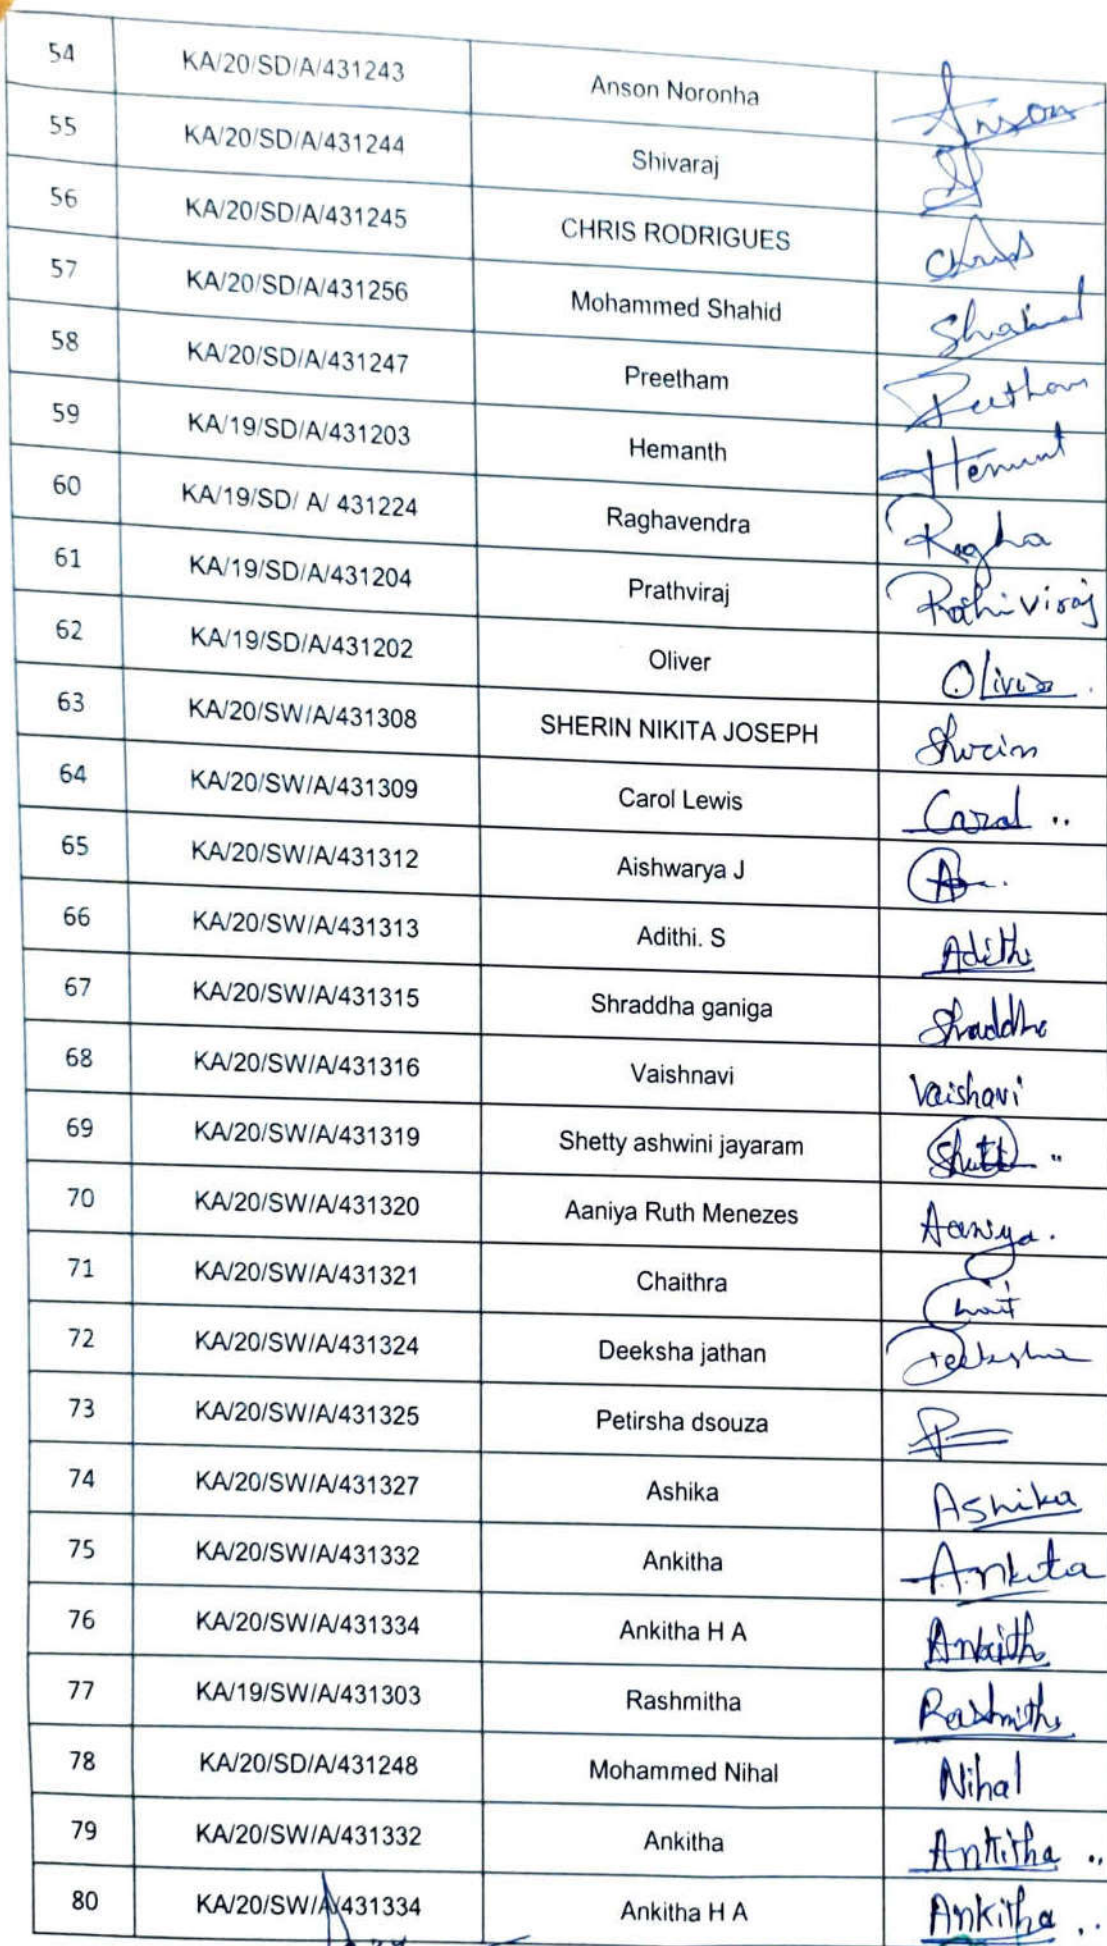 54 KA/20/SD/A/431243 Anson Noronha Anson
55 KA/20/SD/A/431244 Shivaraj
56 KA/20/SD/A/431245 CHRIS RODRIGUES Chris
57 KA/20/SD/A/431256 Mohammed Shahid Shahid
58 KA/20/SD/A/431247 Preetham Preetham
59 KA/19/SD/A/431203 Hemanth Hemant
60 KA/19/SD/ A/ 431224 Raghavendra Ragha
61 KA/19/SD/A/431204 Prathviraj Prathiviraj
62 KA/19/SD/A/431202 Oliver Oliver
63 KA/20/SW/A/431308 SHERIN NIKITA JOSEPH Sherin
64 KA/20/SW/A/431309 Carol Lewis Carol ..
65 KA/20/SW/A/431312 Aishwarya J
66 KA/20/SW/A/431313 Adithi. S Adithi
67 KA/20/SW/A/431315 Shraddha ganiga Shraddha
68 KA/20/SW/A/431316 Vaishnavi Vaishavi
69 KA/20/SW/A/431319 Shetty ashwini jayaram
70 KA/20/SW/A/431320 Aaniya Ruth Menezes Aaniya.
71 KA/20/SW/A/431321 Chaithra Chait
72 KA/20/SW/A/431324 Deeksha jathan Deeksha
73 KA/20/SW/A/431325 Petirsha dsouza
74 KA/20/SW/A/431327 Ashika Ashika
75 KA/20/SW/A/431332 Ankitha Ankita
76 KA/20/SW/A/431334 Ankitha H A Ankith
77 KA/19/SW/A/431303 Rashmitha Rashmitha
78 KA/20/SD/A/431248 Mohammed Nihal Nihal
79 KA/20/SW/A/431332 Ankitha Ankitha ..
80 KA/20/SW/A/431334 Ankitha H A Ankitha ..